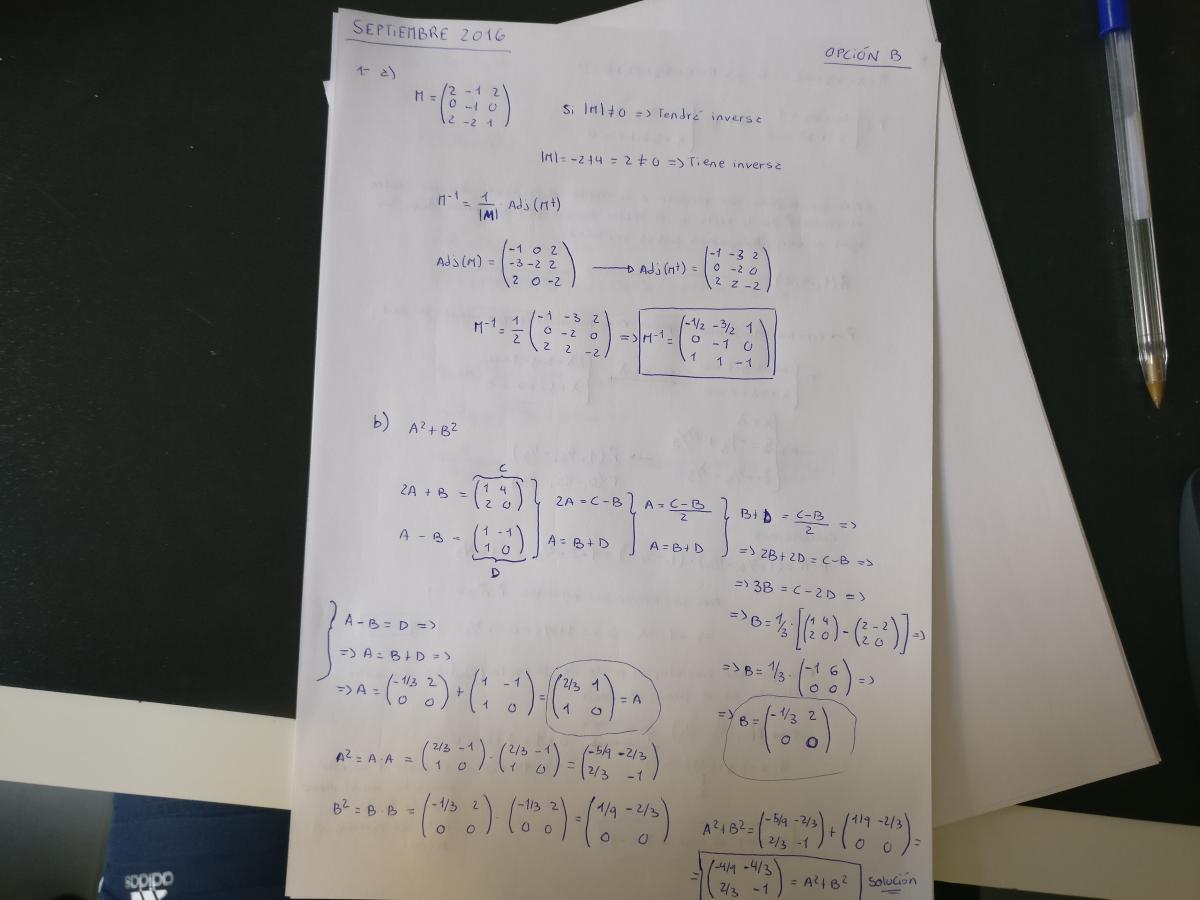 SEPTIEMBRE 2016
OPCIÓN B
1- a)
M = (2 -1 2
0 -1 0
2 -2 1)
Si |M| ≠ 0 => Tendrá inversa
|M| = -2+4 = 2 ≠ 0 => Tiene inversa
M⁻¹ = 1/|M| · Adj(Mᵗ)
Adj(M) = (-1 0 2
-3 -2 2
2 0 -2)
→ Adj(Mᵗ) = (-1 -3 2
0 -2 0
2 2 -2)
M⁻¹ = 1/2 (-1 -3 2
0 -2 0
2 2 -2)
=> M⁻¹ = (-1/2 -3/2 1
0 -1 0
1 1 -1)
b) A² + B²
C
2A + B = (1 4
2 0)
A - B = (1 -1
1 0)
D
2A = C - B
A = B + D
A = C-B/2
A = B + D
B + D = C-B/2 =>
=> 2B + 2D = C - B =>
=> 3B = C - 2D =>
=> B = 1/3 · [(1 4
2 0) - (2 -2
2 0)] =>
=> B = 1/3 · (-1 6
0 0) =>
=> B = (-1/3 2
0 0)
A - B = D =>
=> A = B + D =>
=> A = (-1/3 2
0 0) + (1 -1
1 0) = (2/3 1
1 0) = A
A² = A · A = (2/3 -1
1 0) · (2/3 -1
1 0) = (-5/9 -2/3
2/3 -1)
B² = B · B = (-1/3 2
0 0) · (-1/3 2
0 0) = (1/9 -2/3
0 0)
A² + B² = (-5/9 -2/3
2/3 -1) + (1/9 -2/3
0 0) =
= (-4/9 -4/3
2/3 -1) = A² + B² Solución
adidas